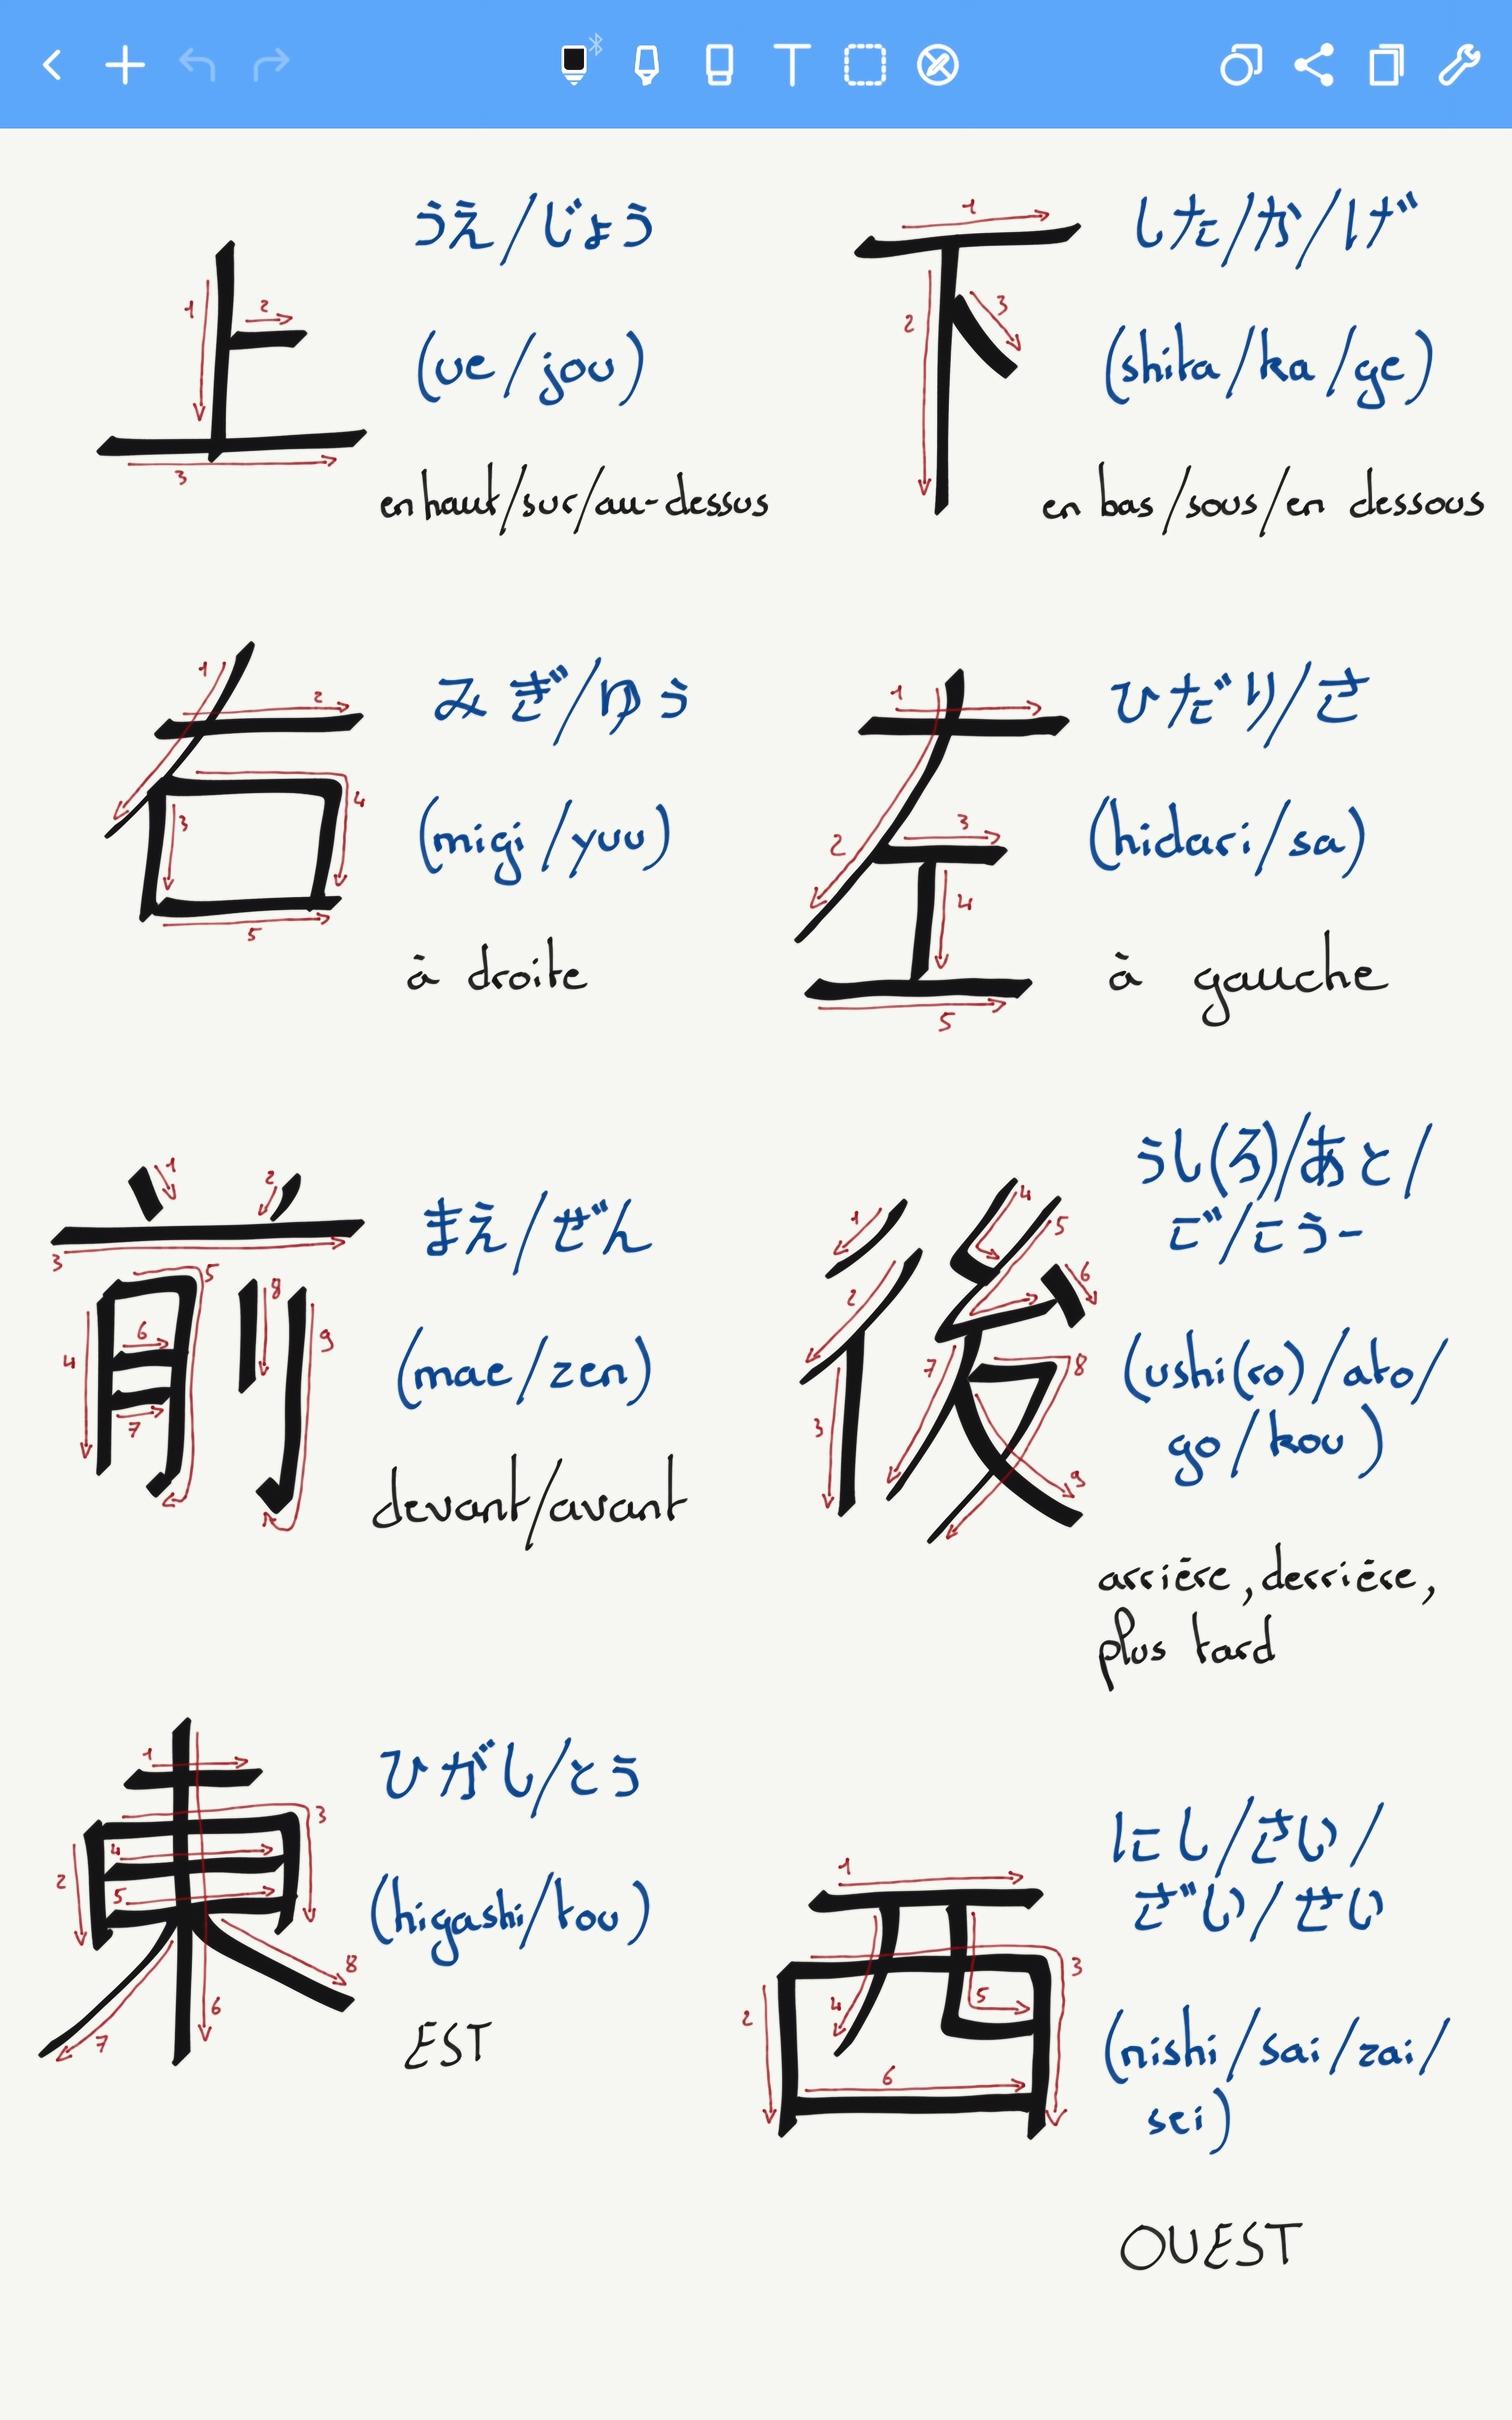 上
うえ/じょう
(ue/jou)
en haut/sur/au-dessus
1
2
3
下
した/か/げ
(shita/ka/ge)
en bas/sous/en dessous
1
2
3
右
みぎ/ゆう
(migi/yuu)
à droite
1
2
3
4
5
左
ひだり/さ
(hidari/sa)
à gauche
1
2
3
4
5
前
まえ/ぜん
(mae/zen)
devant/avant
1
2
3
4
5
6
7
8
9
後
うし(ろ)/あと/
ご/こう-
(ushi(ro)/ato/
go/kou)
arrière, derrière,
plus tard
1
2
3
4
5
6
7
8
9
東
ひがし/とう
(higashi/tou)
EST
1
2
3
4
5
6
7
8
西
にし/さい/
ざい/せい
(nishi/sai/zai/
sei)
OUEST
1
2
3
4
5
6